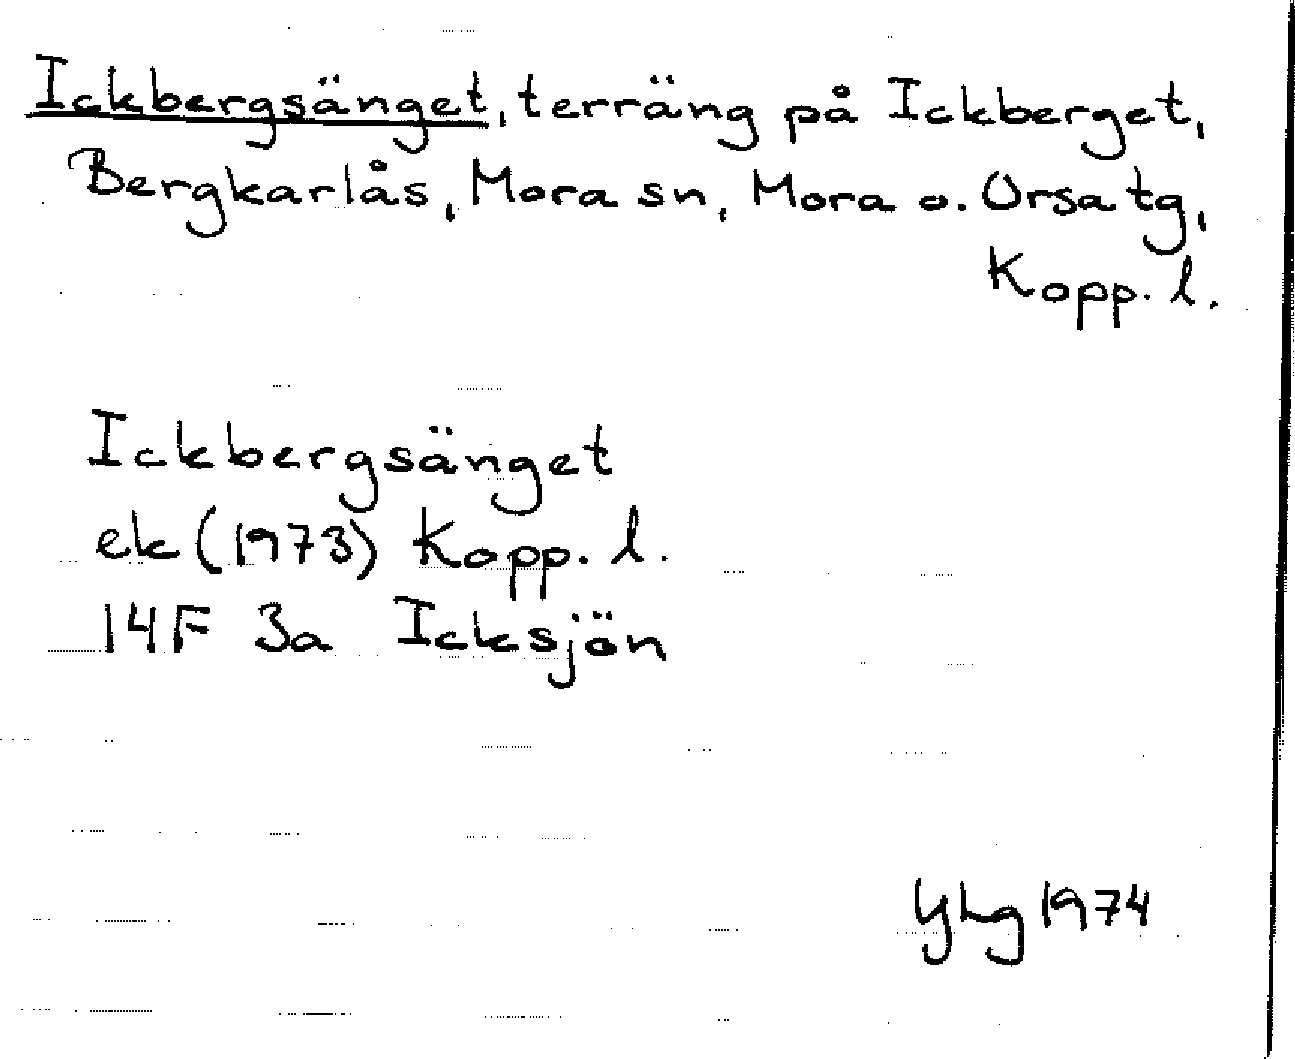 Ickbergsänget, terräng på Ickberget,
Bergkarlås, Mora sn, Mora o. Orsa tg,
Kopp. l.
Ickbergsänget
ek (1973) Kopp. l.
14F 3a Icksjön
YLg 1974